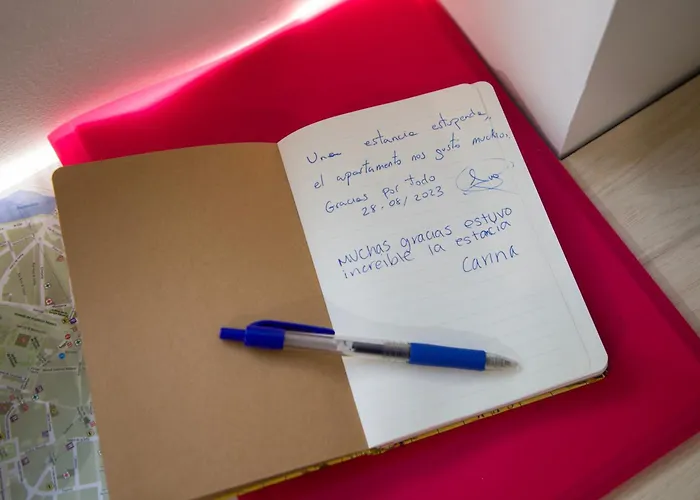 Una estancia estupenda,
el apartamento nos gusto mucho,
Gracias por todo
28.08/2023
Muchas gracias estuvo
increible la estacia
Carina